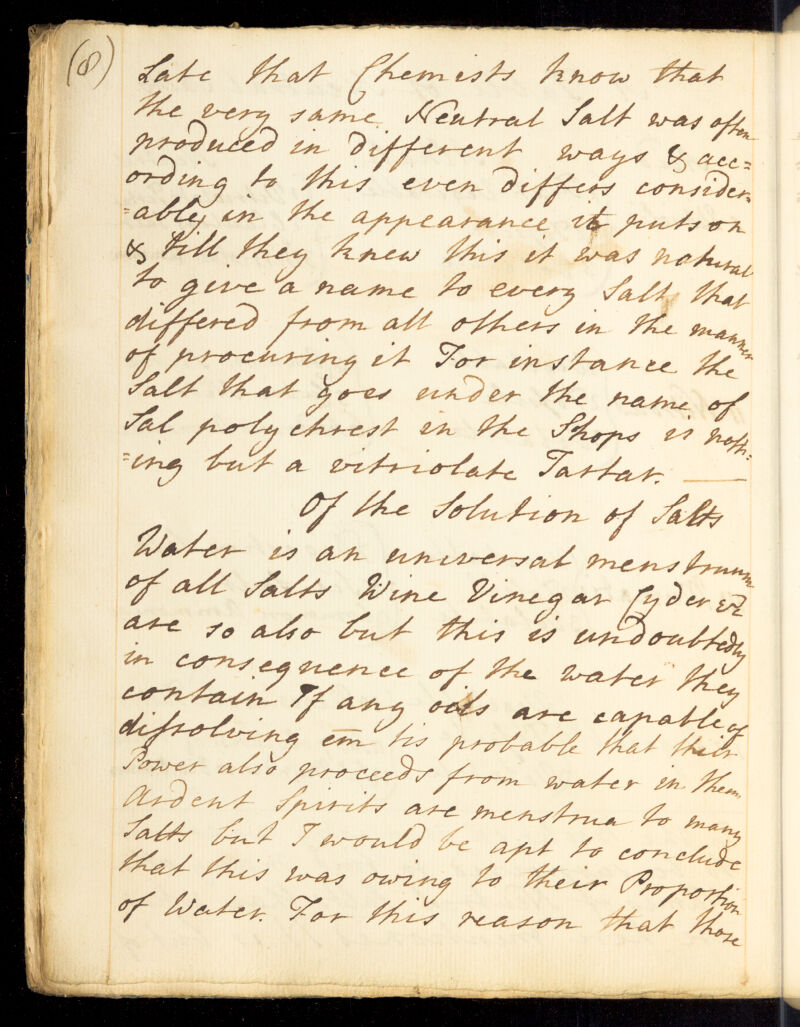 (8)
Late that Chemists know that
the very same Neutral Salt was often
produced in different ways & acc=
ording to this even differs consider=
=ably in the appearance it puts on
& till they knew this it was natural
to give a name to every Salt that
differed from all others in the manner
of procuring it For instance the
Salt that goes under the name of
Sal polychrest in the Shops is noth=
=ing but a vitriolate Tartar.
Of the Solution of Salts
Water is an universal menstruum
of all Salts Wine Vinegar Cyder &c
are so also but this is undoubtedly
in consequence of the water they
contain If any oils are capable of
dissolving em tis probable that their
Power also proceeds from water in them
Ardent Spirits are menstrua to many
Salts but I would be apt to conclude
that this was owing to their Proportion
of Water. For this reason that those